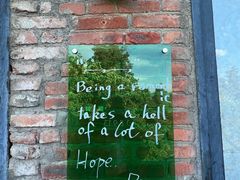 Being a
takes a hell
of a lot of
Hope.